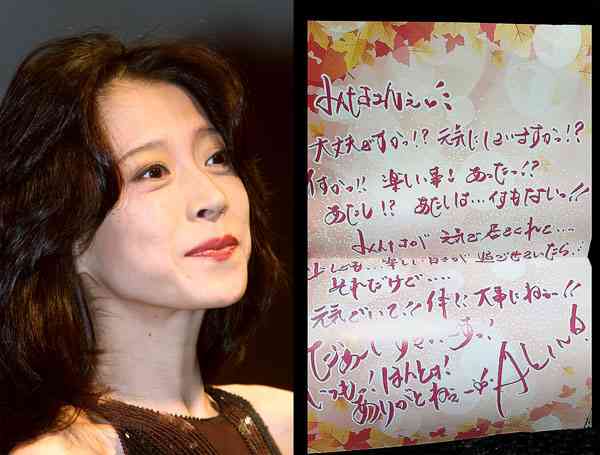 みんなさんえ
大丈夫ですかっ!? 元気にしていますかっ!?
何かっ!! 楽しい事! あったっ!?
あたし!? あたしは…何もないっ!!
みんなが 元気で居てくれた…
少しでも… 楽しい日々が 過ごせていたら…
それだけで….
元気でいて!! 体を 大事にねぇー!!
いつも!! ほんとに!
ありがとねぇー
AKINA